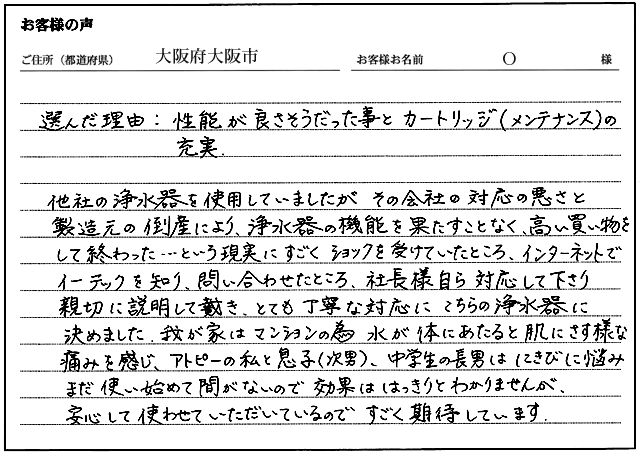 お客様の声
ご住所（都道府県） 大阪府大阪市 お客様お名前 ○ 様
選んだ理由：性能が良さそうだった事とカートリッジ(メンテナンス)の
充実.
他社の浄水器を使用していましたが その会社の対応の悪さと
製造元の倒産により、浄水器の機能を果たすことなく、高い買い物を
して終わった…という現実にすごくショックを受けていたところ、インターネットで
イーテックを知り、問い合わせたところ、社長様自ら対応して下さり
親切に説明して戴き、とても丁寧な対応に こちらの浄水器に
決めました。我が家はマンションの為 水が体にあたると肌にさす様な
痛みを感じ、アトピーの私と息子(次男)、中学生の長男はにきびに悩み
まだ使い始めて間がないので効果ははっきりとわかりませんが、
安心して使わせていただいているので すごく期待しています.